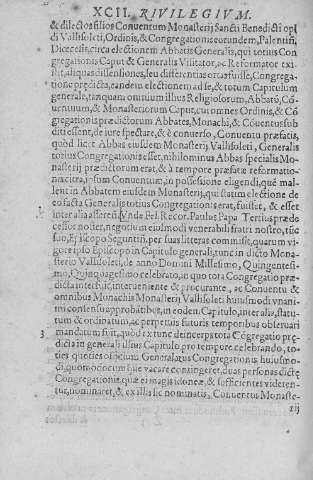 XCII. RIVILEGIVM.
& dilectos filios Conuentum Monasterij Sancti Benedicti opi
di Vallisoleti, Ordinis, & Congregationis eorundem, Palentiñ,
Diœcesis, circa electionem Abbatis Generalis, qui totius Con
gregationis Caput & Generalis Visitator, ac Reformator exi
stit, aliquas dissensiones, seu differentias ortas fuisse, Congrega
tione prædicta, tandem electionem ad se, & totum Capitulum
generale, tanquam omnium illius Religiosorum, Abbatũ, Cõ
uentuum, & Monasteriorum Caput, ac omnes Ordinis, & Cõ
gregationis prædictorum Abbates, Monachi, & Cõuentus sub
diti essent, de iure spectare, & è conuerso, Conuentu præfatis,
quòd licet Abbas eiusdem Monasterij, Vallisoleti, Generalis
totius Congregationis esset, nihilominus Abbas specialis Mo-
nasterij prædictorum erat, & à tempore præfatæ reformatio-
nis citra, ipsum Conuentum, in possessione eligendi, què mal
lent in Abbatem eiusdem Monasterij, qui statim electione de
eo facta Generalis totius Congregationis erat, fuisset, & esset
inter alia asserẽti. Vnde Fel. Recor. Paulus Papa Tertius præde
cessor noster, negotium eiusmodi venerabili fratri nostro, tũc
suo, Episcopo Seguntiñ, per suas litteras commisit, quarum vi-
gore ipso Episcopo in Capitulo generali, tunc in dicto Mona-
sterio Vallisoleti, de anno Domini Millesimo, Quingentesi-
mo, Quinquagesimo celebrato, in quo tota Congregatio præ-
dicta interfuit, interueniente & procurante, ac Conuentu &
omnibus Monachis Monasterij Vallisoleti huiusmodi vnani-
mi consensu approbãtibus, in eodem Capitulo, inter alia, statu
tum & ordinatum, ac perpetuis futuris temporibus obseruari
3 mandatum fuit, quòd ex tunc deinceps tota Cõgregatio præ-
dicta in generali ipsius Capitulo pro tempore celebrando, to-
ties quoties officium Generalatus Congregationis huiusmo-
di, quomodocumque vacare contingeret, duas personas dictæ
Congregationis, quæ ei magis idoneæ, & sufficientes videren-
tur, nominaret, & ex illis sic nominatis, Conuentus Monaste-
rij